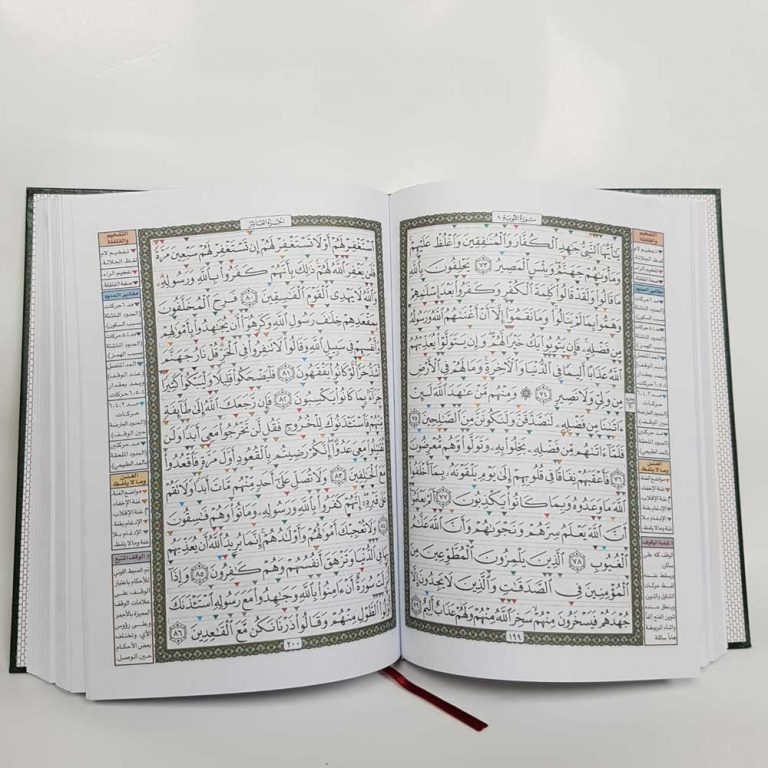 سُورَةُ التَّوْبَةِ ٩
يَٰٓأَيُّهَا ٱلنَّبِىُّ جَٰهِدِ ٱلْكُفَّارَ وَٱلْمُنَٰفِقِينَ وَٱغْلُظْ عَلَيْهِمْ
وَمَأْوَىٰهُمْ جَهَنَّمُ وَبِئْسَ ٱلْمَصِيرُ ٧٣ يَحْلِفُونَ بِٱللَّهِ
مَا قَالُوا۟ وَلَقَدْ قَالُوا۟ كَلِمَةَ ٱلْكُفْرِ وَكَفَرُوا۟ بَعْدَ إِسْلَٰمِهِمْ
وَهَمُّوا۟ بِمَا لَمْ يَنَالُوا۟ وَمَا نَقَمُوٓا۟ إِلَّآ أَنْ أَغْنَىٰهُمُ ٱللَّهُ وَرَسُولُهُۥ
مِن فَضْلِهِۦ فَإِن يَتُوبُوا۟ يَكُ خَيْرًا لَّهُمْ وَإِن يَتَوَلَّوْا۟ يُعَذِّبْهُمُ
ٱللَّهُ عَذَابًا أَلِيمًا فِى ٱلدُّنْيَا وَٱلْءَاخِرَةِ وَمَا لَهُمْ فِى ٱلْأَرْضِ
مِن وَلِىٍّ وَلَا نَصِيرٍ ٧٤ ۞ وَمِنْهُم مَّنْ عَٰهَدَ ٱللَّهَ لَئِنْ
ءَاتَىٰنَا مِن فَضْلِهِۦ لَنَصَّدَّقَنَّ وَلَنَكُونَنَّ مِنَ ٱلصَّٰلِحِينَ ٧٥
فَلَمَّآ ءَاتَىٰهُم مِّن فَضْلِهِۦ بَخِلُوا۟ بِهِۦ وَتَوَلَّوا۟ وَّهُم مُّعْرِضُونَ
٧٦ فَأَعْقَبَهُمْ نِفَاقًا فِى قُلُوبِهِمْ إِلَىٰ يَوْمِ يَلْقَوْنَهُۥ بِمَآ أَخْلَفُوا۟
ٱللَّهَ مَا وَعَدُوهُ وَبِمَا كَانُوا۟ يَكْذِبُونَ ٧٧ أَلَمْ يَعْلَمُوٓا۟
أَنَّ ٱللَّهَ يَعْلَمُ سِرَّهُمْ وَنَجْوَىٰهُمْ وَأَنَّ ٱللَّهَ عَلَّٰمُ
ٱلْغُيُوبِ ٧٨ ٱلَّذِينَ يَلْمِزُونَ ٱلْمُطَّوِّعِينَ مِنَ
ٱلْمُؤْمِنِينَ فِى ٱلصَّدَقَٰتِ وَٱلَّذِينَ لَا يَجِدُونَ إِلَّا
جُهْدَهُمْ فَيَسْخَرُونَ مِنْهُمْ سَخِرَ ٱللَّهُ مِنْهُمْ وَلَهُمْ عَذَابٌ أَلِيمٌ ٧٩
١٩٩
الجُزْءُ العَاشِرُ
ٱسْتَغْفِرْ لَهُمْ أَوْ لَا تَسْتَغْفِرْ لَهُمْ إِن تَسْتَغْفِرْ لَهُمْ سَبْعِينَ مَرَّةً
فَلَن يَغْفِرَ ٱللَّهُ لَهُمْ ذَٰلِكَ بِأَنَّهُمْ كَفَرُوا۟ بِٱللَّهِ وَرَسُولِهِۦ
وَٱللَّهُ لَا يَهْدِى ٱلْقَوْمَ ٱلْفَٰسِقِينَ ٨٠ فَرِحَ ٱلْمُخَلَّفُونَ
بِمَقْعَدِهِمْ خِلَٰفَ رَسُولِ ٱللَّهِ وَكَرِهُوٓا۟ أَن يُجَٰهِدُوا۟ بِأَمْوَٰلِهِمْ
وَأَنفُسِهِمْ فِى سَبِيلِ ٱللَّهِ وَقَالُوا۟ لَا تَنفِرُوا۟ فِى ٱلْحَرِّ قُلْ نَارُ جَهَنَّمَ
أَشَدُّ حَرًّا لَّوْ كَانُوا۟ يَفْقَهُونَ ٨١ فَلْيَضْحَكُوا۟ قَلِيلًا وَلْيَبْكُوا۟ كَثِيرًا
جَزَآءًۢ بِمَا كَانُوا۟ يَكْسِبُونَ ٨٢ فَإِن رَّجَعَكَ ٱللَّهُ إِلَىٰ طَآئِفَةٍ
مِّنْهُمْ فَٱسْتَـْٔذَنُوكَ لِلْخُرُوجِ فَقُل لَّن تَخْرُجُوا۟ مَعِىَ أَبَدًا وَلَن
تُقَٰتِلُوا۟ مَعِىَ عَدُوًّا إِنَّكُمْ رَضِيتُم بِٱلْقُعُودِ أَوَّلَ مَرَّةٍ فَٱقْعُدُوا۟
مَعَ ٱلْخَٰلِفِينَ ٨٣ وَلَا تُصَلِّ عَلَىٰٓ أَحَدٍ مِّنْهُم مَّاتَ أَبَدًا وَلَا تَقُمْ
عَلَىٰ قَبْرِهِۦٓ إِنَّهُمْ كَفَرُوا۟ بِٱللَّهِ وَرَسُولِهِۦ وَمَاتُوا۟ وَهُمْ فَٰسِقُونَ
٨٤ وَلَا تُعْجِبْكَ أَمْوَٰلُهُمْ وَأَوْلَٰدُهُمْ إِنَّمَا يُرِيدُ ٱللَّهُ أَن يُعَذِّبَهُم
بِهَا فِى ٱلدُّنْيَا وَتَزْهَقَ أَنفُسُهُمْ وَهُمْ كَٰفِرُونَ ٨٥ وَإِذَآ
أُنزِلَتْ سُورَةٌ أَنْ ءَامِنُوا۟ بِٱللَّهِ وَجَٰهِدُوا۟ مَعَ رَسُولِهِ ٱسْتَـْٔذَنَكَ
أُو۟لُوا۟ ٱلطَّوْلِ مِنْهُمْ وَقَالُوا۟ ذَرْنَا نَكُن مَّعَ ٱلْقَٰعِدِينَ ٨٦
٢٠٠
التفخيم
والقلقلة
تفخيم لام
لفظ الجلالة
تفخيم الراء
صفة القلقلة
مقادير المدود